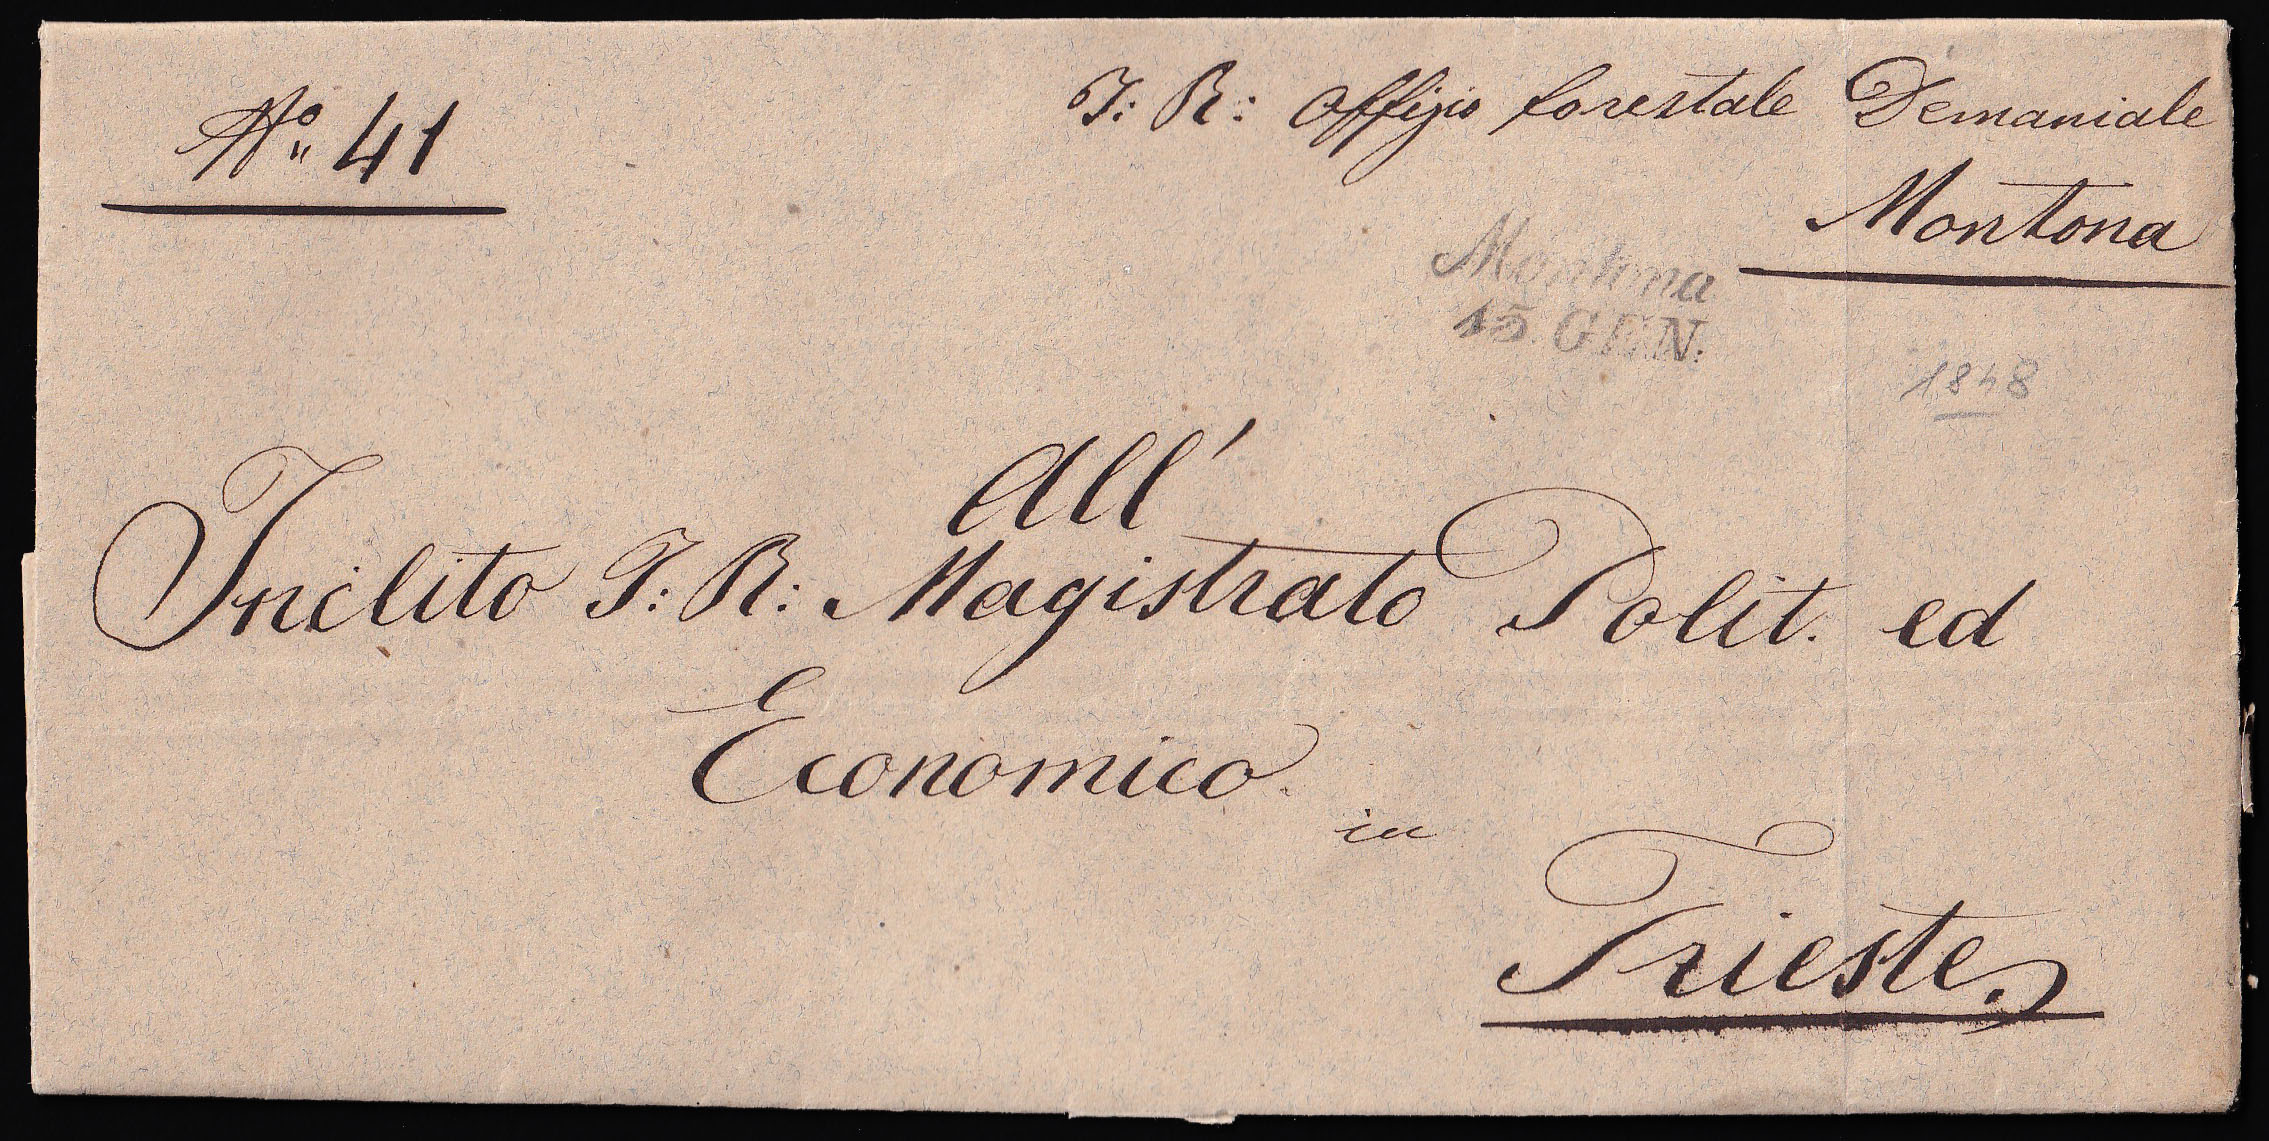 No. 41
I: R: Offizio forestale Demaniale
Montona
Montona
15 GEN.
1848
All'
Inclito I: R: Magistrato Polit. ed
Economico.
in
Trieste.